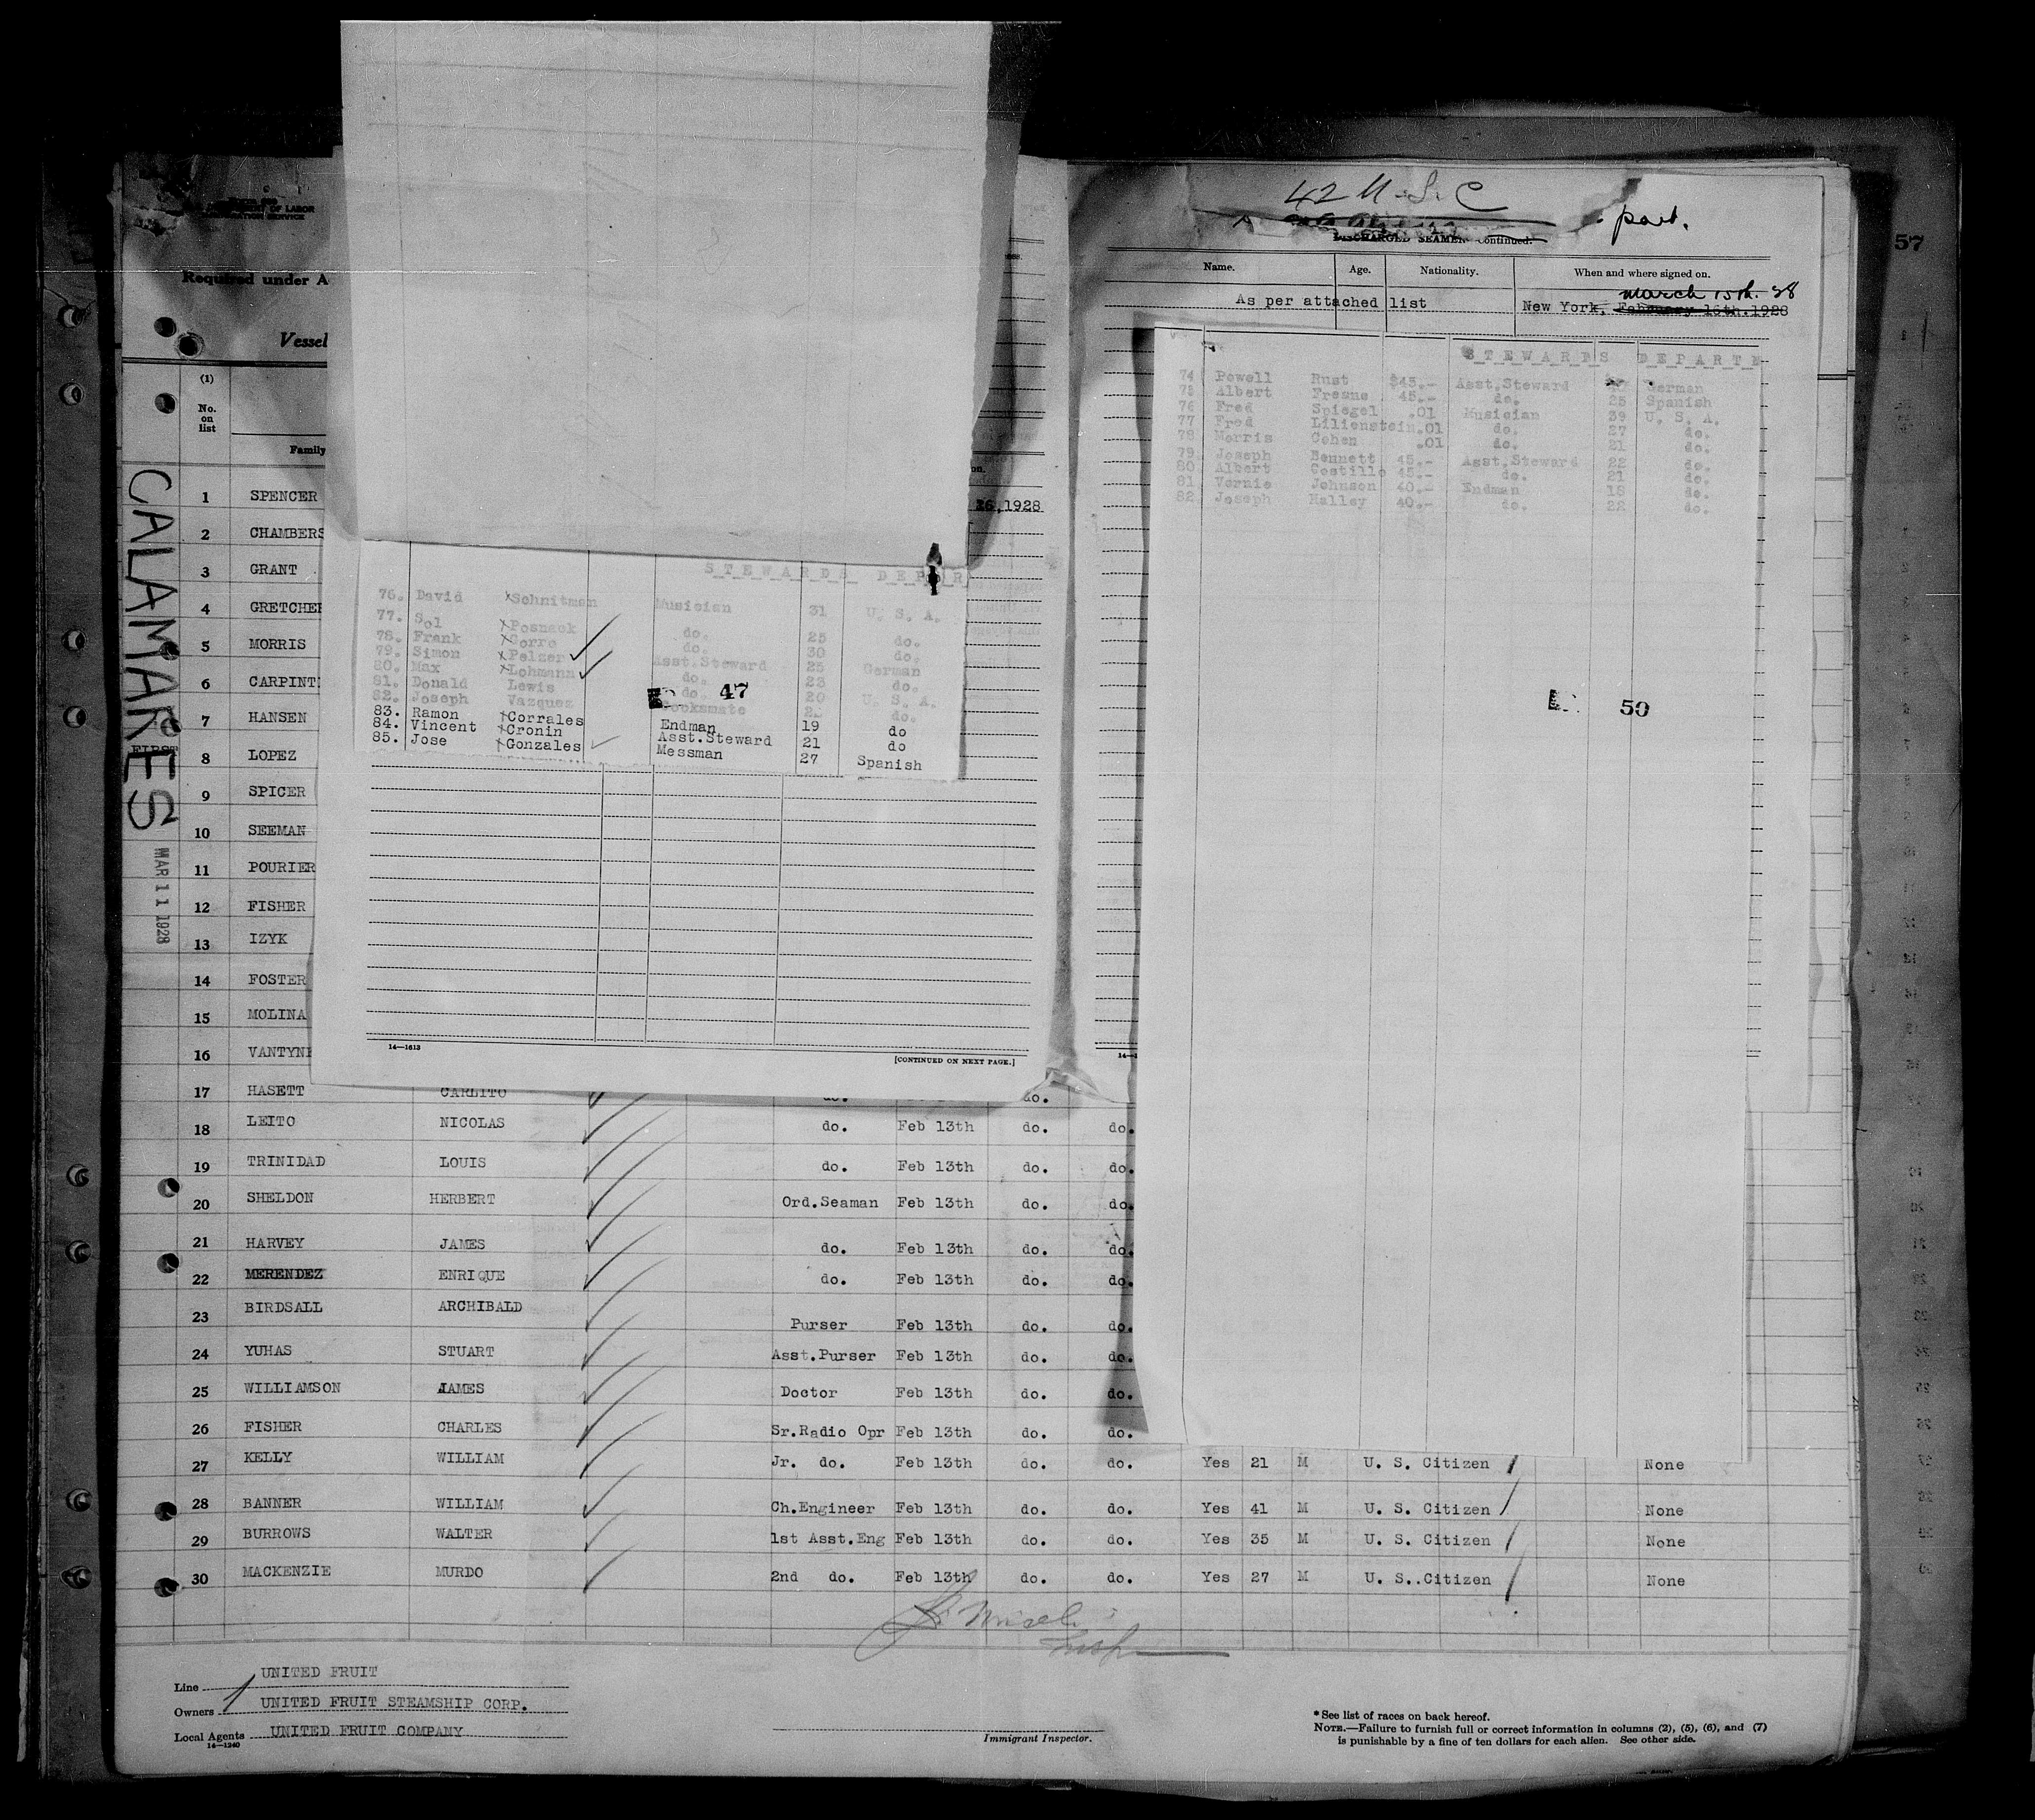 57
42 U.S.C
part.
DISCHARGED SEAMEN Continued.
Name. Age. Nationality. When and where signed on.
March 15th. 28
As per attached list New York, February 16th. 1928
STEWARDS DEPARTM
74 Powell Rust $45.- Asst.Steward German
75 Albert Fresno 45.- do. 25 Spanish
76 Fred Spiegel .01 Musician 39 U. S. A.
77 Fred Lilienstein .01 do. 27 do.
78 Morris Cohen .01 do. 21 do.
79 Joseph Bennett 45.- Asst.Steward 22 do.
80 Albert Costillo 45.- do. 21 do.
81 Vernie Johnson 40.- Endman 18 do.
82 Joseph Malley 40.- do. 22 do.
50
DEPARTMENT OF LABOR
IMMIGRATION SERVICE
Required under A
Vessel
(1)
No. on list
Family
CALAMARES
FIRST
MAR 11 1928
26,1928
STEWARDS DEPAR
76. David Schnitman Musician 31 U. S. A.
77. Sol Posnack do. 25 do.
78. Frank Corro do. 30 do.
79. Simon Pelzer Asst.Steward 25 German
80. Max Lohmann do. 23 do.
81. Donald Lewis do. 20 U. S. A.
82. Joseph Vazquez Cooksmate do.
83. Ramon Corrales Endman 19 do
84. Vincent Cronin Asst.Steward 21 do
85. Jose Gonzales Messman 27 Spanish
47
14—1613 [CONTINUED ON NEXT PAGE.]
1 SPENCER
2 CHAMBERS
3 GRANT
4 GRETCHE
5 MORRIS
6 CARPINT
7 HANSEN
8 LOPEZ
9 SPICER
10 SEEMAN
11 POURIER
12 FISHER
13 IZYK
14 FOSTER
15 MOLINA
16 VANTYN
17 HASETT CARLITO do. do.
18 LEITO NICOLAS do. Feb 13th do. do.
19 TRINIDAD LOUIS do. Feb 13th do. do.
20 SHELDON HERBERT Ord.Seaman Feb 13th do. do.
21 HARVEY JAMES do. Feb 13th do. do.
22 MERENDEZ ENRIQUE do. Feb 13th do. do.
23 BIRDSALL ARCHIBALD Purser Feb 13th do. do.
24 YUHAS STUART Asst.Purser Feb 13th do. do.
25 WILLIAMSON JAMES Doctor Feb 13th do. do.
26 FISHER CHARLES Sr.Radio Opr Feb 13th do. do.
27 KELLY WILLIAM Jr. do. Feb 13th do. do. Yes 21 M U. S. Citizen None
28 BANNER WILLIAM Ch.Engineer Feb 13th do. do. Yes 41 M U. S. Citizen None
29 BURROWS WALTER 1st Asst.Eng Feb 13th do. do. Yes 35 M U. S. Citizen None
30 MACKENZIE MURDO 2nd do. Feb 13th do. do. Yes 27 M U. S..Citizen None
Insp
Line UNITED FRUIT
Owners UNITED FRUIT STEAMSHIP CORP.
Local Agents UNITED FRUIT COMPANY
14—1240
Immigrant Inspector.
*See list of races on back hereof.
NOTE.—Failure to furnish full or correct information in columns (2), (5), (6), and (7)
is punishable by a fine of ten dollars for each alien. See other side.